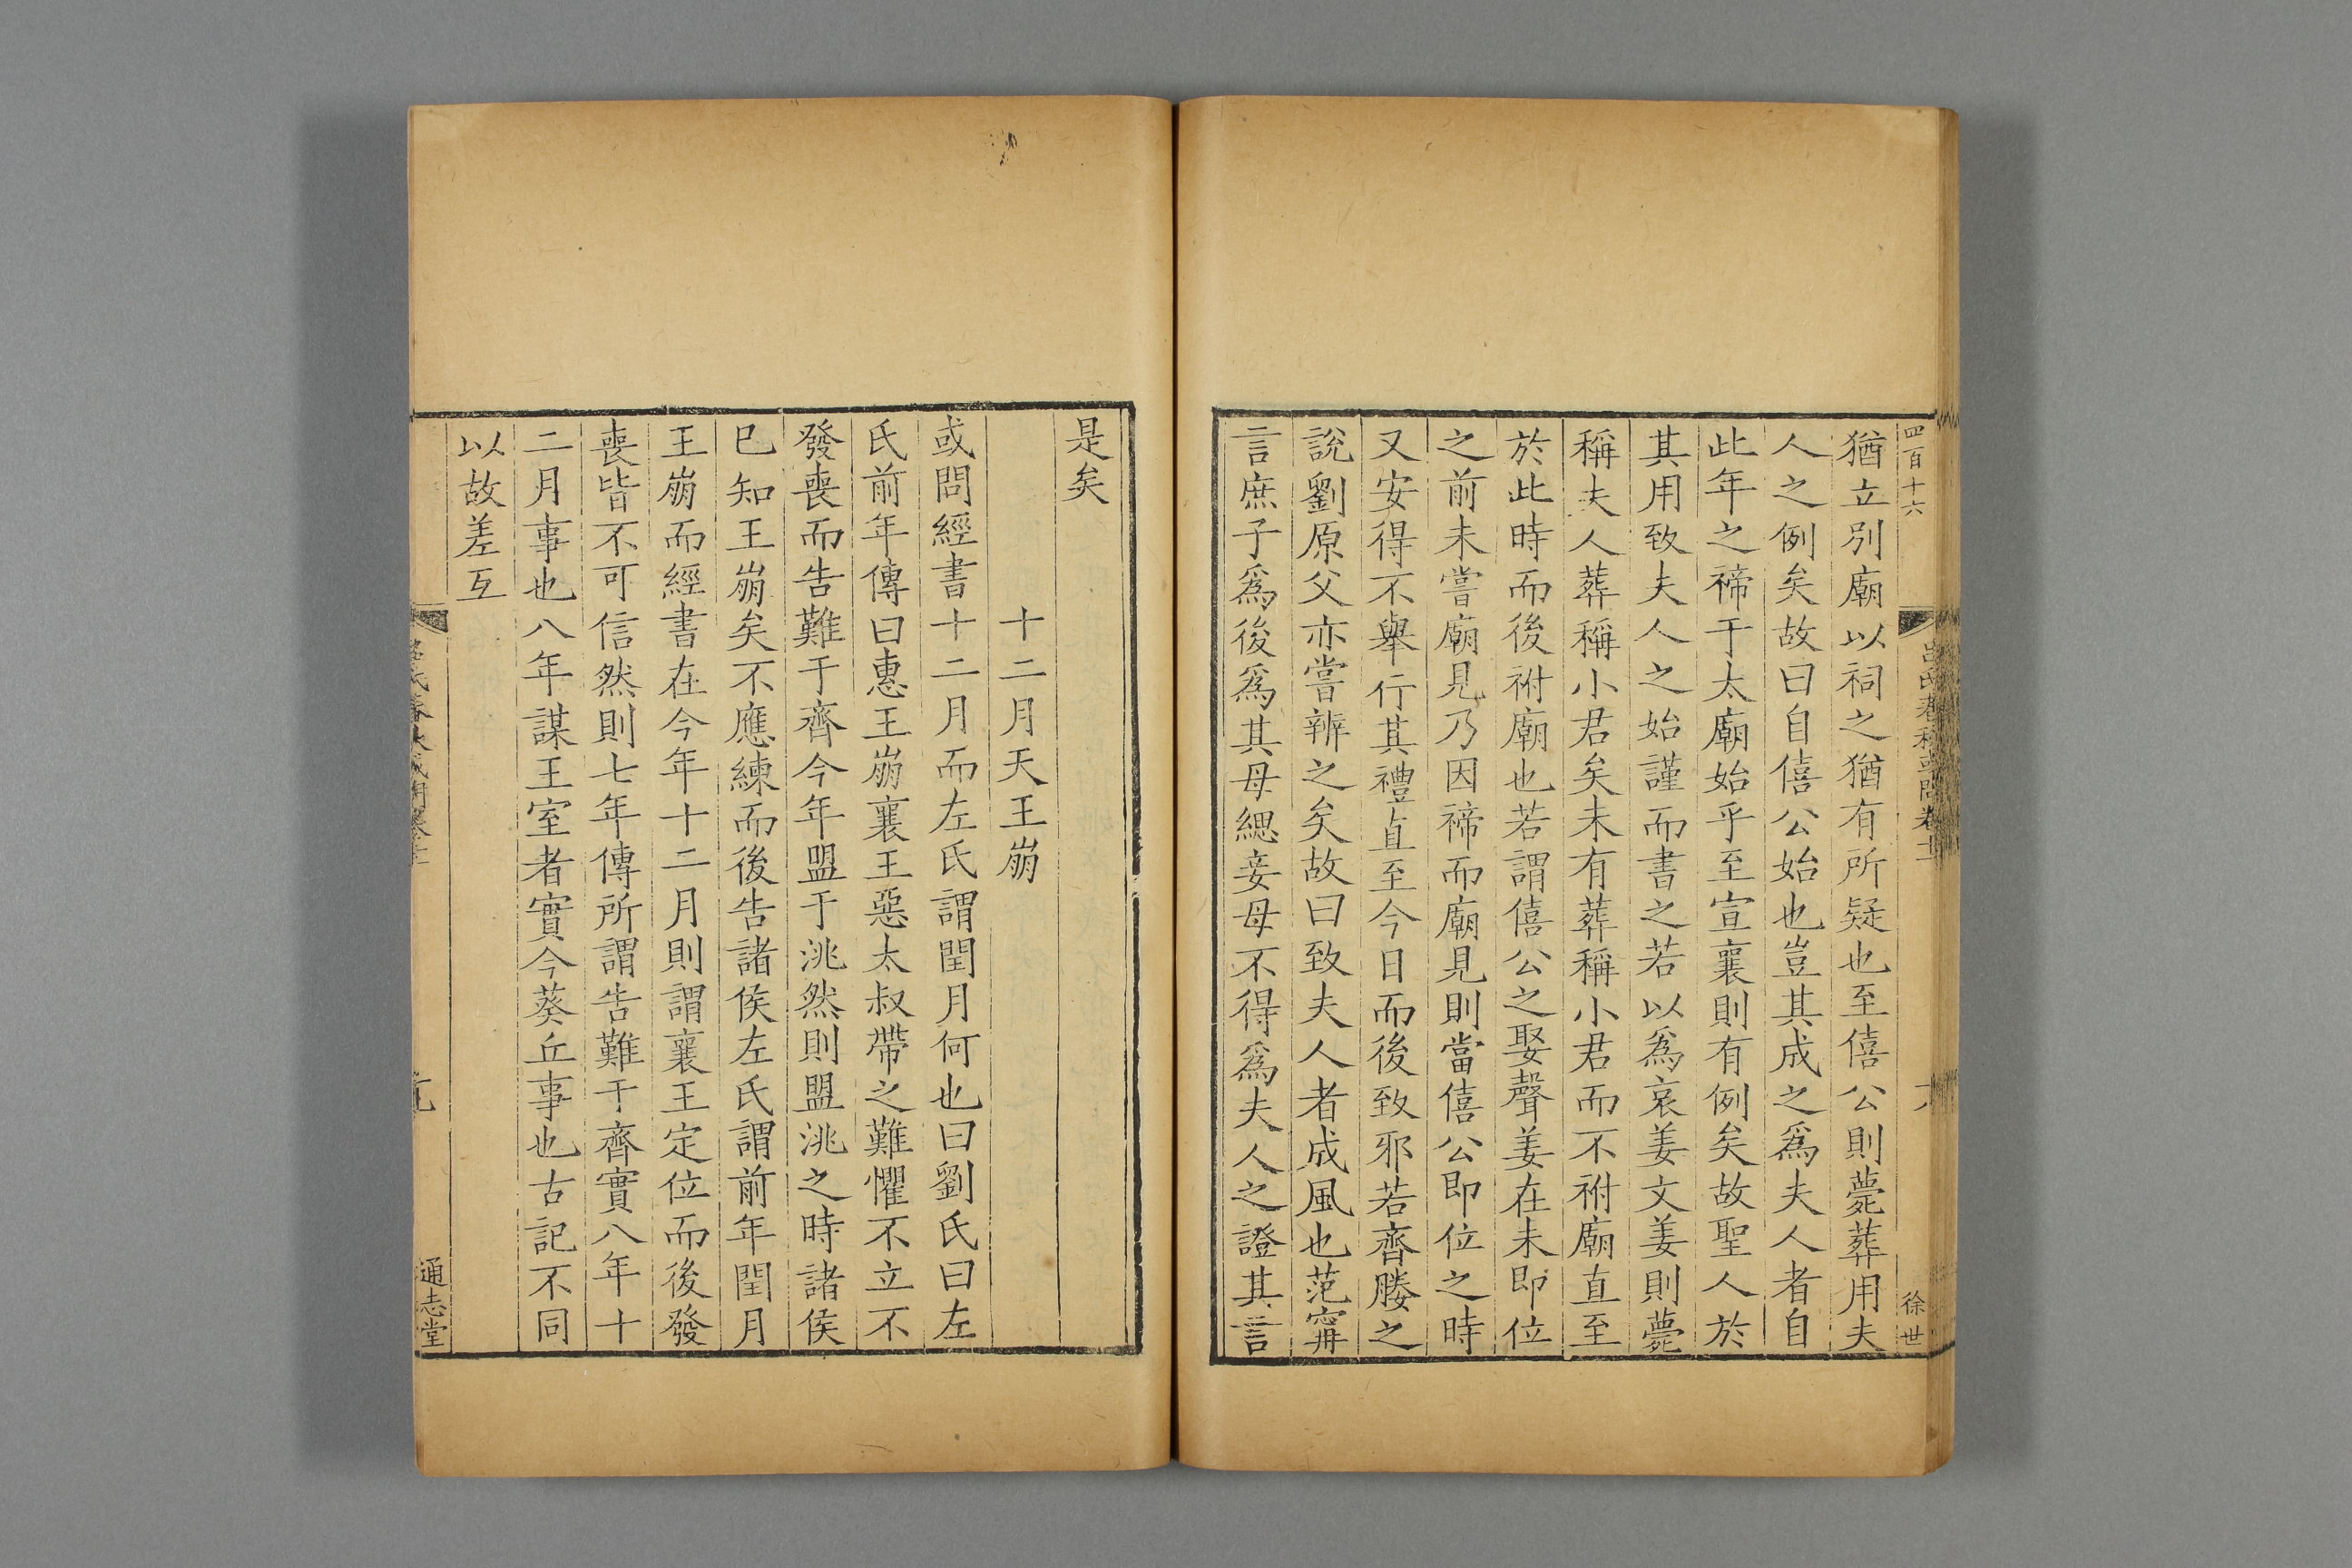 四百十六
呂氏春秋或問卷十二
十八
徐世
猶立別廟以祠之猶有所疑也至僖公則薨葬用夫
人之例矣故曰自僖公始也豈其成之爲夫人者自
此年之禘于太廟始乎至宣襄則有例矣故聖人於
其用致夫人之始謹而書之若以爲哀姜文姜則薨
稱夫人葬稱小君矣未有葬稱小君而不祔廟直至
於此時而後祔廟也若謂僖公之娶聲姜在未即位
之前未嘗廟見乃因禘而廟見則當僖公即位之時
又安得不舉行其禮直至今日而後致邪若齊媵之
說劉原父亦嘗辨之矣故曰致夫人者成風也范甯
言庶子爲後爲其母緦妾母不得爲夫人之證其言
是矣
十二月天王崩
或問經書十二月而左氏謂閏月何也曰劉氏曰左
氏前年傳曰惠王崩襄王惡太叔帶之難懼不立不
發喪而告難于齊今年盟于洮然則盟洮之時諸侯
已知王崩矣不應練而後告諸侯左氏謂前年閏月
王崩而經書在今年十二月則謂襄王定位而後發
喪皆不可信然則七年傳所謂告難于齊實八年十
二月事也八年謀王室者實今葵丘事也古記不同
以故差互
通志堂